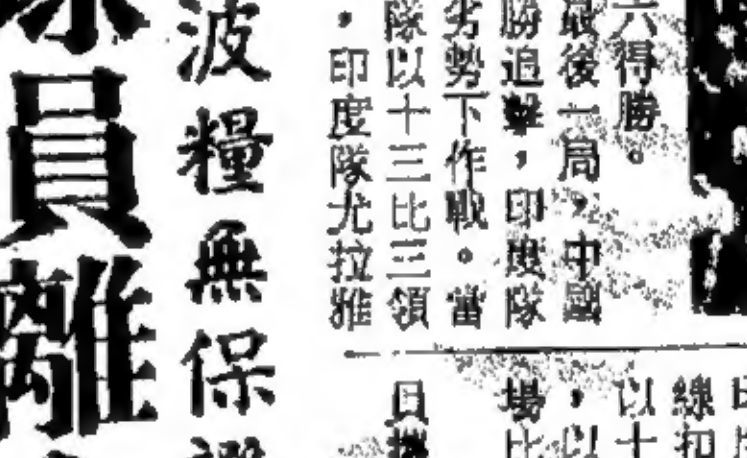 六得勝。
最後一局，中國
勝追擊，印度隊
劣勢下作戰。當
隊以十三比三領
，印度隊尤拉雅
線扣
以十
，以
場比
日
波糧無保證
員離